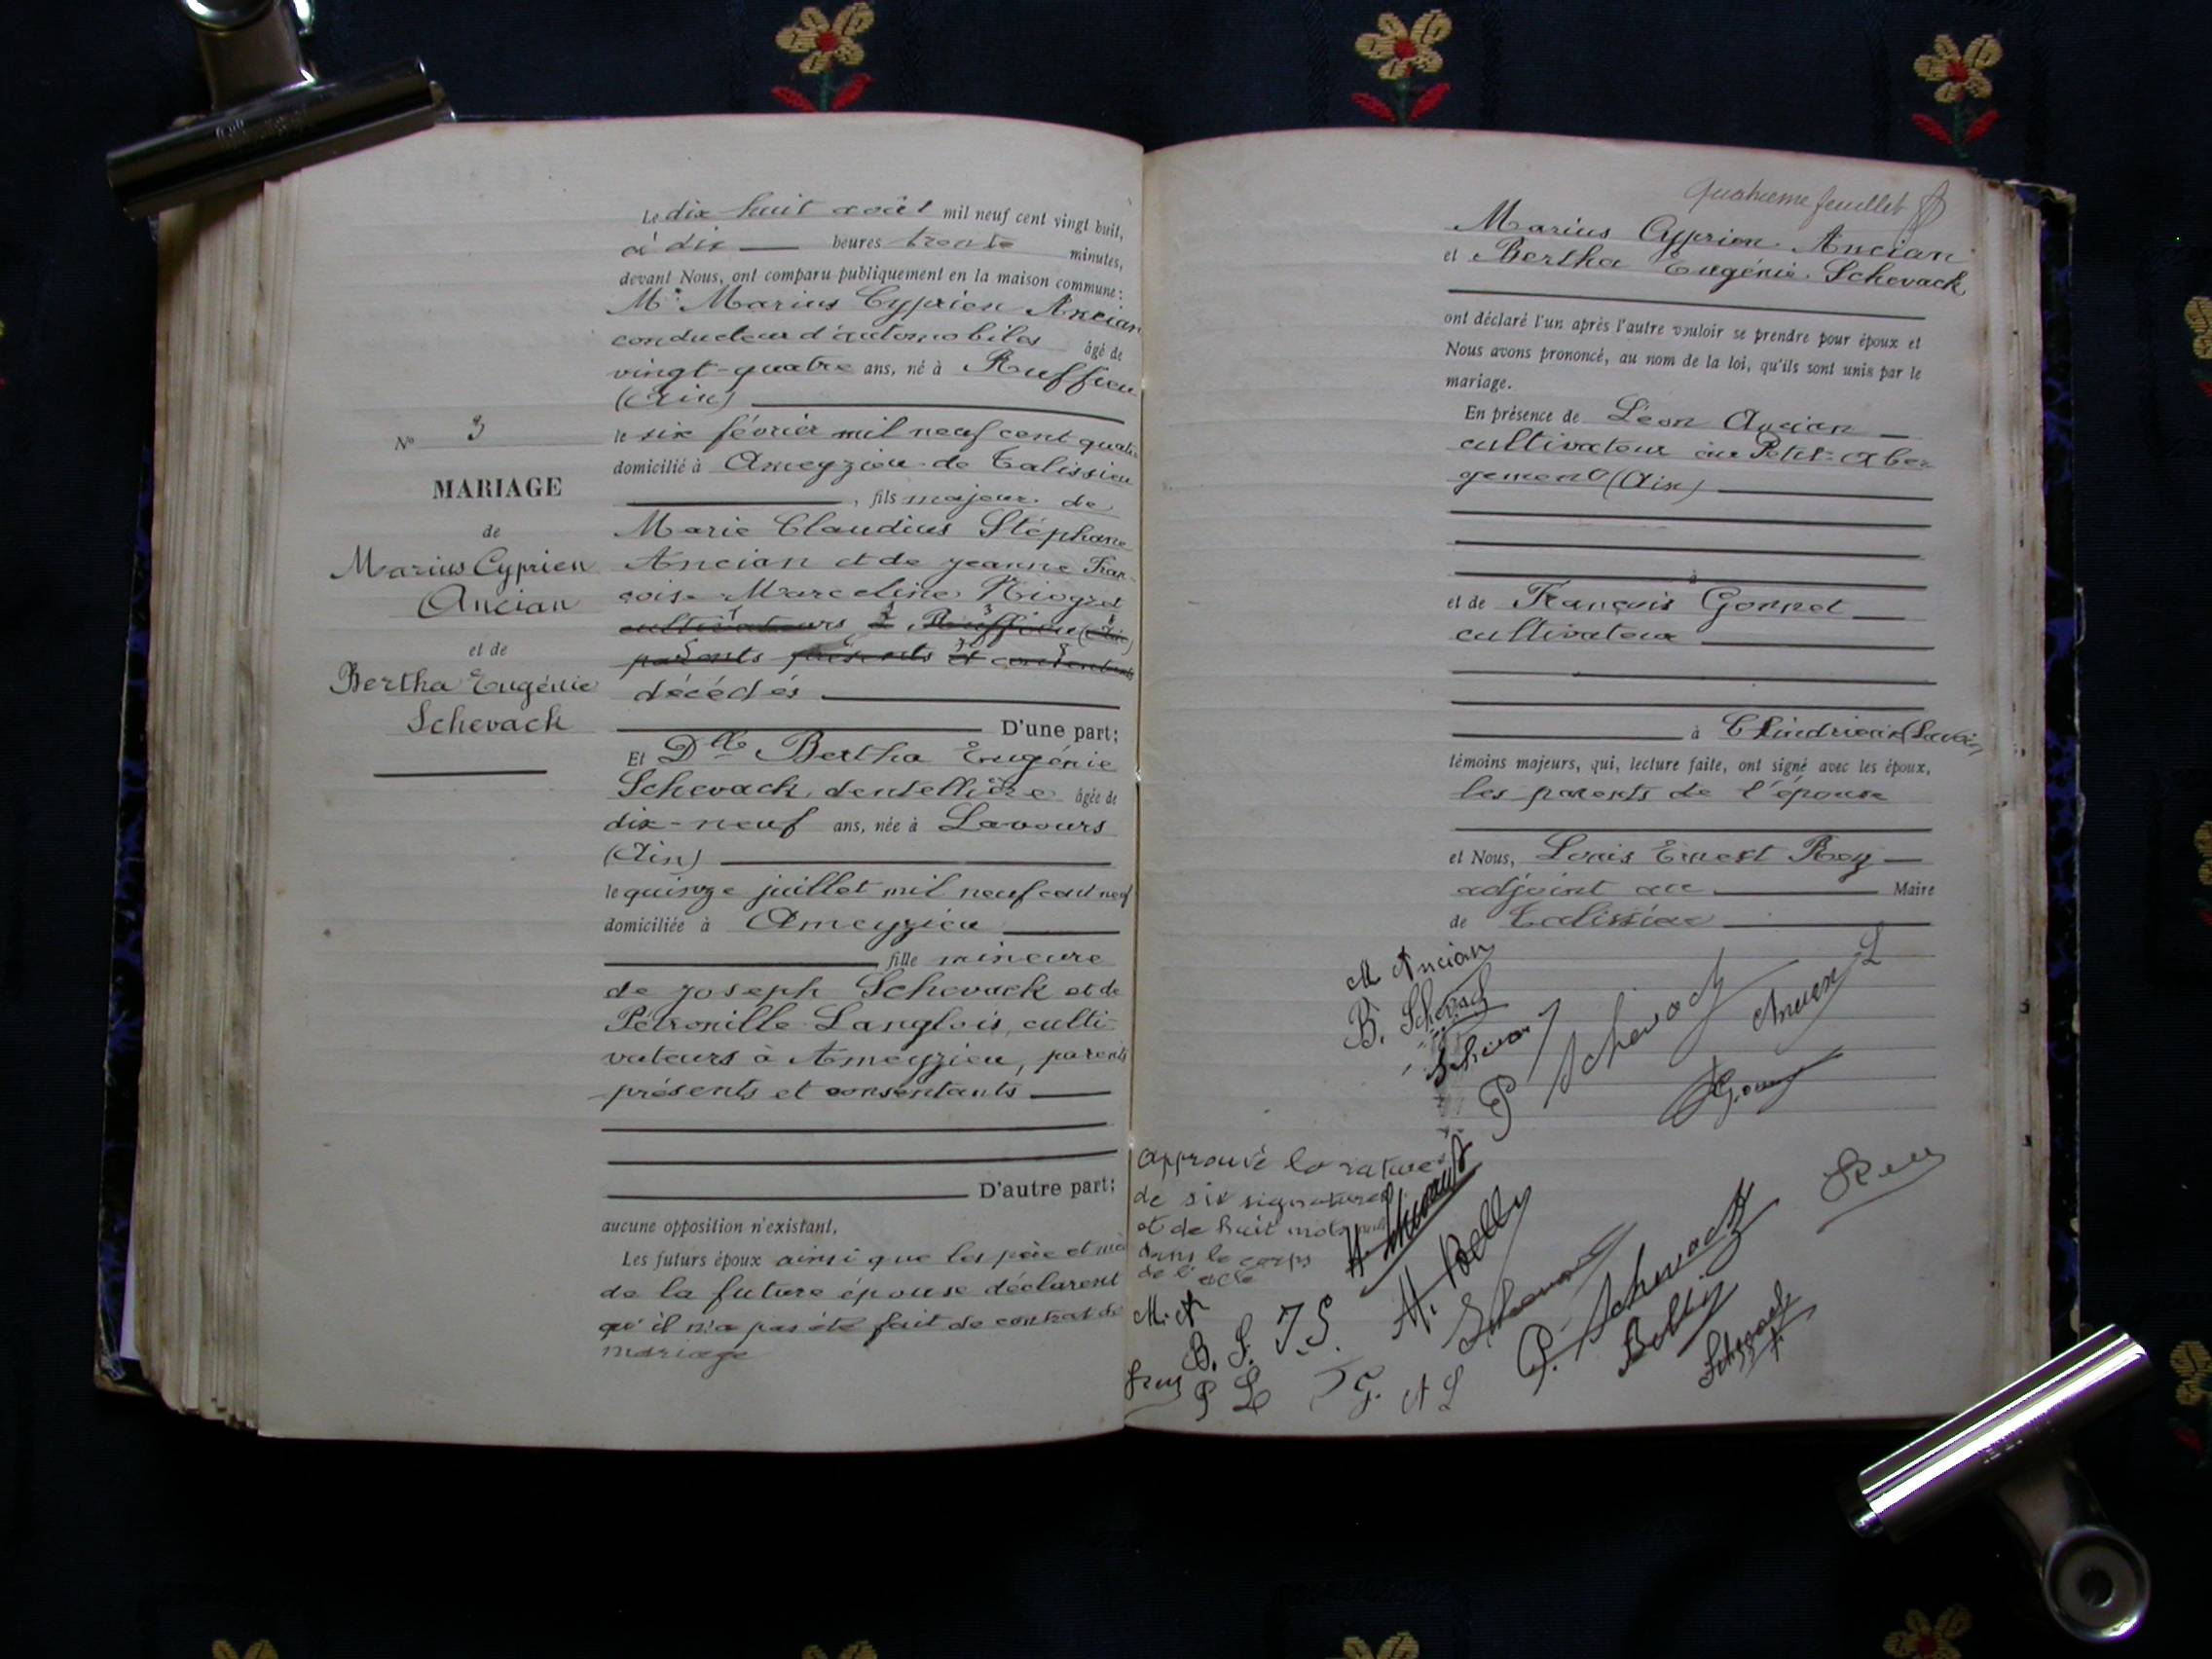 N° 3
MARIAGE
de
Marius Cyprien
Ancian
et de
Bertha Eugénie
Schevack
Le dix huit août mil neuf cent vingt huit,
à dix heures trente minutes,
devant Nous, ont comparu publiquement en la maison commune:
Mr Marius Cyprien Ancian
conducteur d'automobiles âgé de
vingt-quatre ans, né à Ruffieu
(Ain)
le six février mil neuf cent quatre
domicilié à Ameyzieu de Talissieu
, fils majeur de
Marie Claudius Stéphane
Ancian et de Jeanne Fran-
çoise Marceline Riogret
cultivateurs à Ruffieu (Ain)
parents présents et consentants
décédés
D'une part;
Et Dlle Bertha Eugénie
Schevack, dentellière âgée de
dix-neuf ans, née à Lavours
(Ain)
le quinze juillet mil neuf cent neuf
domiciliée à Ameyzieu
fille mineure
de Joseph Schevack et de
Pétronille Langlois, culti-
vateurs à Ameyzieu, parents
présents et consentants
D'autre part;
aucune opposition n'existant,
Les futurs époux ainsi que les père et mère
de la future épouse déclarent
qu'il n'a pas été fait de contrat de
mariage
quatrième feuillet
Marius Cyprien Ancian
et Bertha Eugénie Schevack
ont déclaré l'un après l'autre vouloir se prendre pour époux et
Nous avons prononcé, au nom de la loi, qu'ils sont unis par le
mariage.
En présence de Léon Ancian
cultivateur au Petit-Aber-
gement (Ain)
à
et de François Gonnet
cultivateur
à Chindrieux (Savoie)
témoins majeurs, qui, lecture faite, ont signé avec les époux,
les parents de l'épouse
et Nous, Louis Ernest Rey
adjoint au Maire
de Talissieu
M Ancian
B. Schevack
P Schevack
Ancian L
approuvé la rature
de six signatures
et de huit mots nuls
dans le corps
de l'acte
H. Belly
P. Schevack
Belly
Schevack
M. A
B. S. J. S.
P L
F G. A L